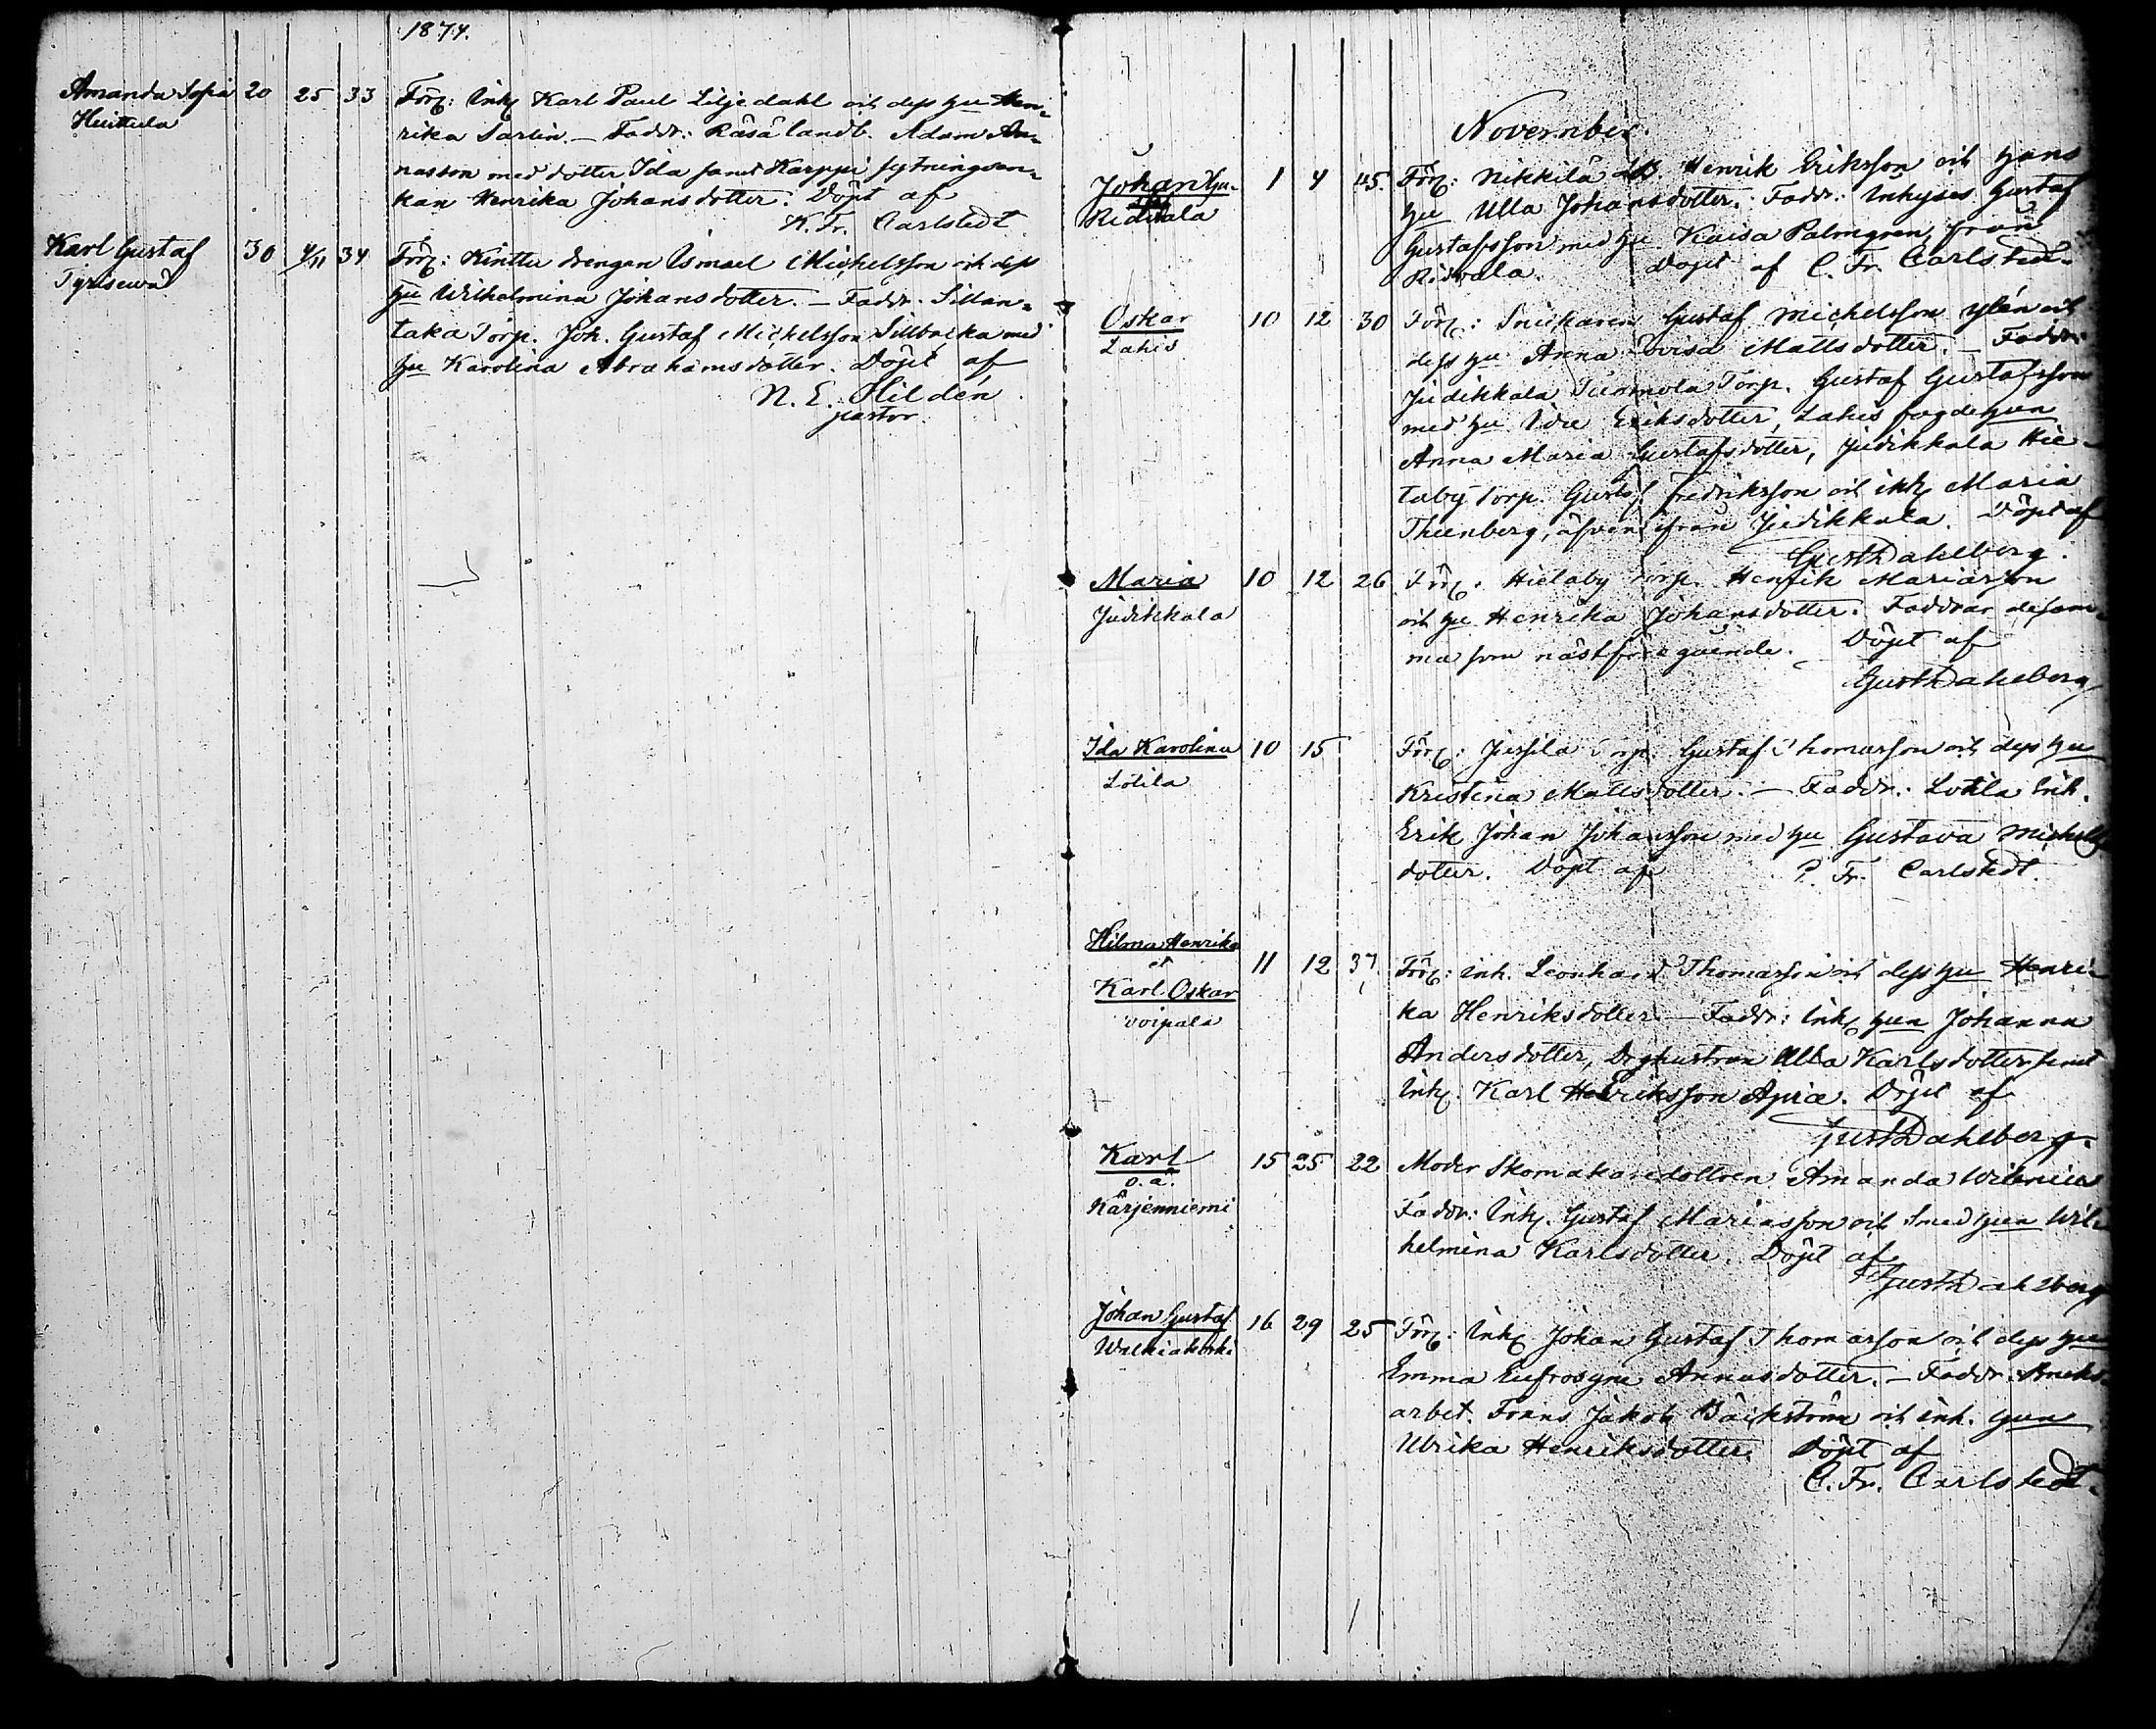 1874.
Amanda Sofia 20 25 33 Förä: Inh Karl Paul Liljedahl och dess hu Hen-
Huittula rika Sarlin. — Faddr: Räsä landb. Adam An-
nasson med dotter Ida samt Karppi sytningsen-
kan Henrika Johansdotter. Döpt af
K. Fr. Carlstedt
Karl Gustaf 30 4/11 34 Förä: Kinttu drengen Ismael Michelsson och dess
hu Wilhelmina Johansdotter. — Faddr. Sillan-
taka Torp. Joh. Gustaf Michelsson Sillbacka med
hu Karolina Abrahamsdotter. Döpt af
N. E. Hildén
pastor.
November.
Johan 1 4 45. Förä: Nikkilä Henrik Eriksson och hans
Ridvala hu Ulla Johansdotter. Faddr: Inhyses Gustaf
Gustafsson med hu Kaisa Palmgren, från
Ridvala. Döpt af C. Fr. Carlstedt.
Oskar 10 12 30 Förä: Snickaren Gustaf Michelsson Ylén och
Lahis dess hu Anna Lovisa Mattsdotter. — Faddr:
Judikkala Torp. Gustaf Gustafsson
med hu Eriksdotter, Lahis fogdehun
Anna Maria Gustafsdotter, Judikkala Hie-
taby Torp. Gustaf Fredriksson och inh Maria
Thunberg, äfven från Judikkala. Döpt af
Gust Dahlberg.
Maria 10 12 26 Förä: Hietaby Torp. Henrik Mariasson
Judikkala och hu Henrika Johansdotter. Faddrar desam-
ma som nästföregående. Döpt af
Gust Dahlberg
Ida Karolina 10 15 Förä: Jussila Torp. Gustaf Thomasson och dess hu
Lotila Kristina Mattsdotter. — Faddr: Lotila Inh.
Erik Johan Johansson med hu Gustava Michels
dotter. Döpt af C. Fr. Carlstedt.
Hilma Henrika
et 11 12 37 Förä: Inh. Leonhard Thomasson och dess hu Henri-
Karl Oskar ka Henriksdotter. — Faddr: Inh hun Johanna
Voipala Andersdotter, Drghustrun Ulla Karlsdotter samt
Inh. Karl Henriksson Apia. Döpt af
Gust Dahlberg.
Karl 15 25 22 Moder Skomakaredottren Amanda
o.ä. Faddr: Inh. Gustaf Mariasson och Smedhun Wil-
Kärjenniemi helmina Karlsdotter. Döpt af
Gust Dahlberg
Johan Gustaf 16 29 25 Förä: Inh Johan Gustaf Thomasson och dess hu
Walkiakoski Emma Eufrosyne Annasdotter. — Faddr: Bruks-
arbet. Frans Jakob Bäckström och inh. hun
Ulrika Henriksdotter. Döpt af
C. Fr. Carlstedt.